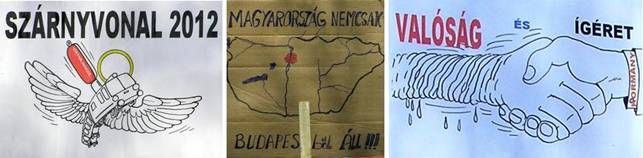 SZÁRNYVONAL 2012
MAGYARORSZÁG NEMCSAK
BUDAPESből ÁLL!!!
VALÓSÁG ÉS ÍGÉRET
KORMÁNY